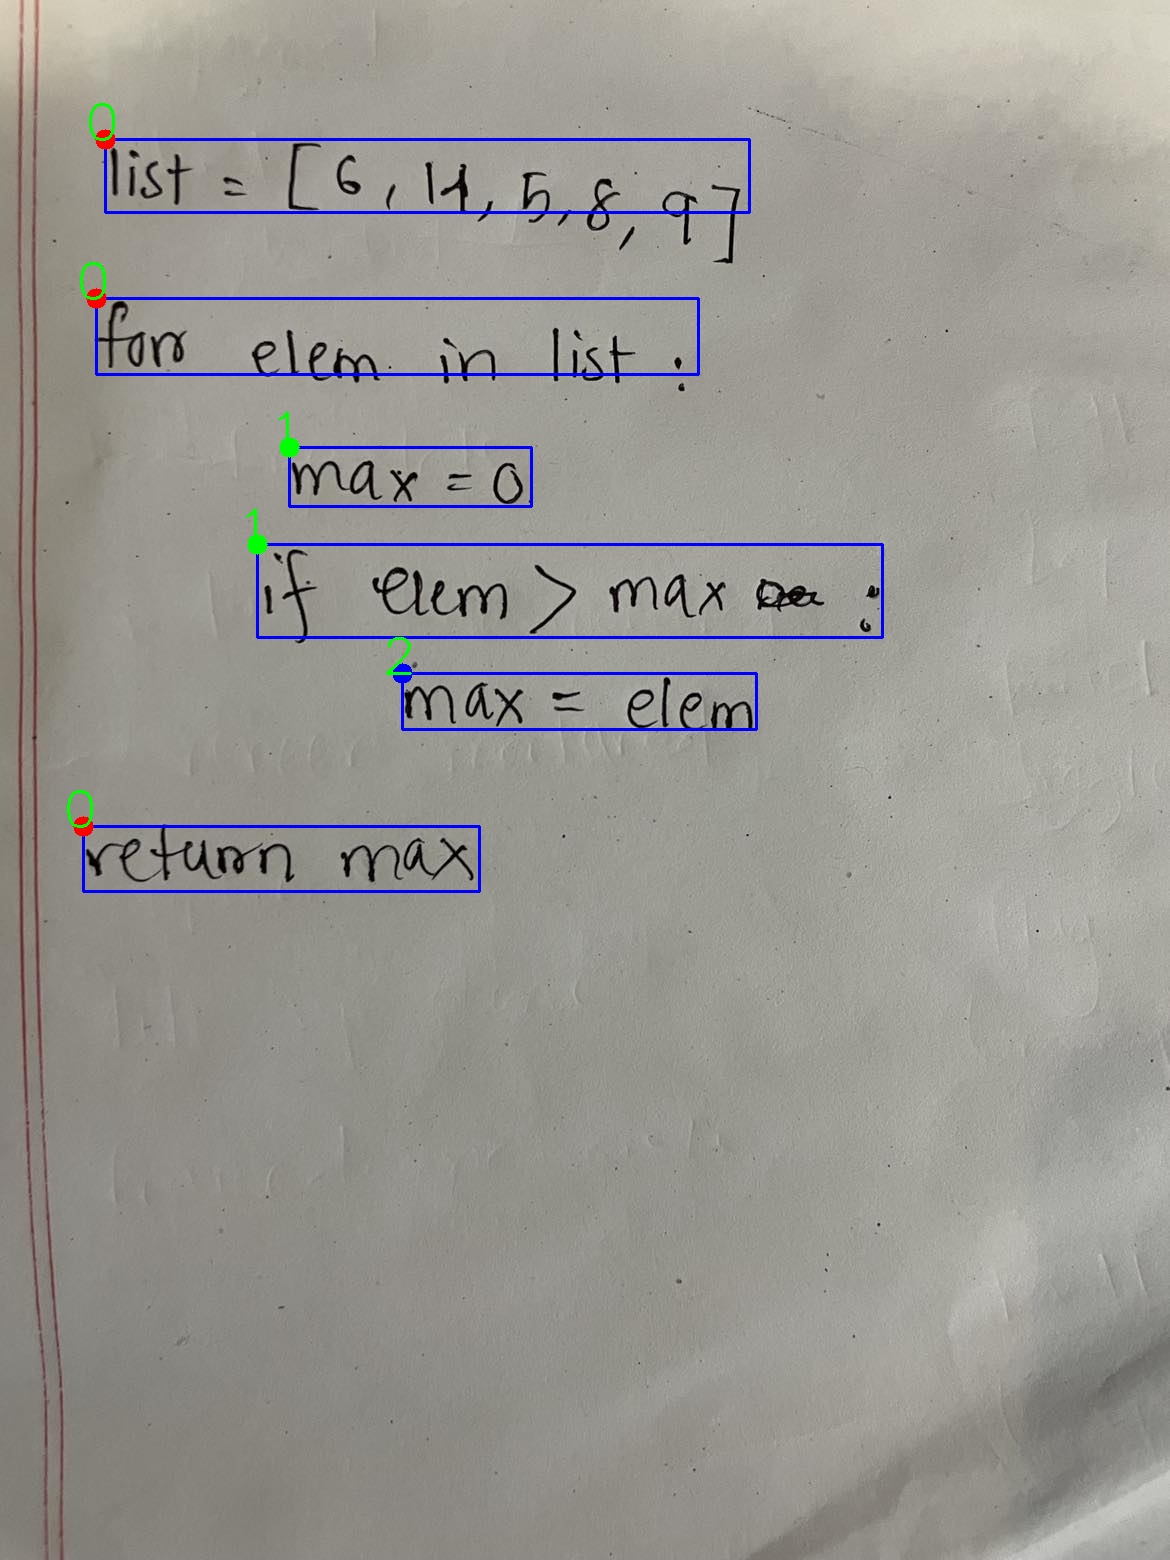 0
list = [6, 14, 5, 8, 9]
0
for elem in list :
1
max = 0
1
if elem > max :
2
max = elem
0
return max